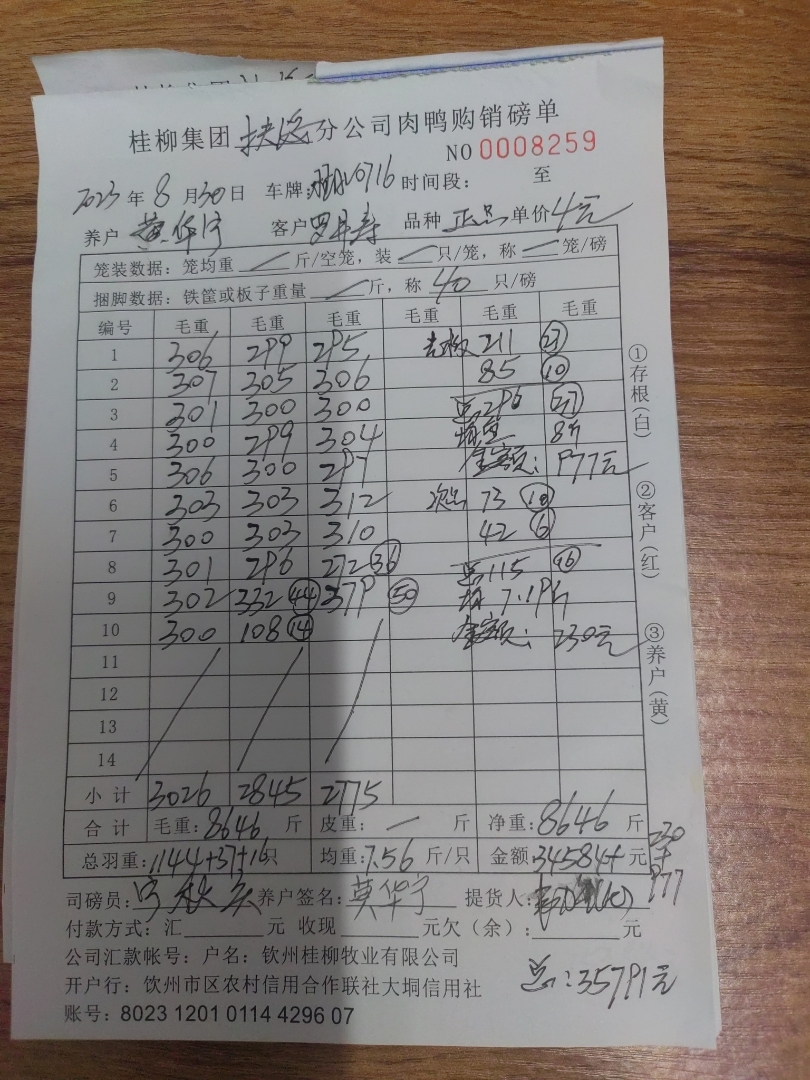 桂柳集团 扶绥 分公司肉鸭购销磅单
NO 0008259
2023年8月30日 车牌: 0716 时间段: 至
养户 黄华宁 客户 罗 寿 品种 正品 单价 4元
笼装数据：笼均重 / 斤/空笼，装 / 只/笼，称 / 笼/磅
捆脚数据：铁筐或板子重量 / 斤，称 40 只/磅
编号 毛重 毛重 毛重 毛重 毛重 毛重
1 306 299 295 211 27
2 307 305 306 85 10
3 301 300 300 总296 37
4 300 299 304 8斤
5 306 300 297 金额: 977元
6 303 303 312 次品 73 10
7 300 303 310 42 6
8 301 296 272 36 总115 16
9 302 332 44 379 50 均 7.19斤
10 300 108 14 金额: 230元
11
12
13
14
小计 3026 2845 2775
合计 毛重: 8646 斤 皮重: / 斤 净重: 8646 斤
总羽重: 1144+37+16只 均重: 7.56 斤/只 金额 34584+ 元 230
+
977
司磅员: 养户签名: 莫华宁 提货人:
付款方式：汇 元 收现 元欠（余）: 元
公司汇款帐号：户名：钦州桂柳牧业有限公司
开户行：钦州市区农村信用合作联社大垌信用社
总: 35791元
账号：8023 1201 0114 4296 07
①存根(白)
②客户(红)
③养户(黄)